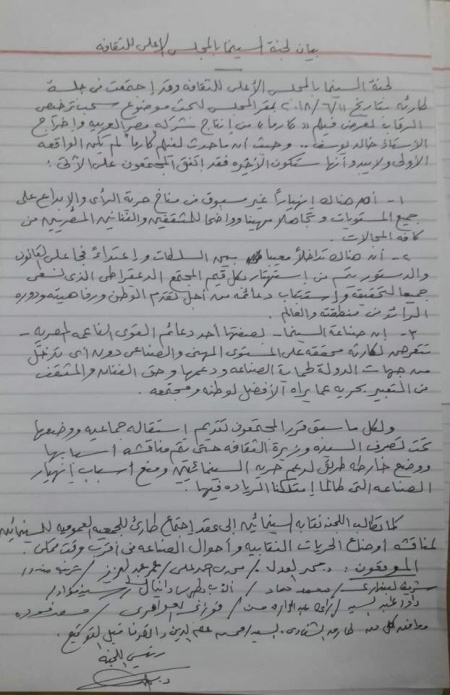 بيان لجنة السينما بالمجلس الأعلى للثقافة
لجنة السينما بالمجلس الأعلى للثقافة وقد اجتمعت فى جلسة
طارئة بتاريخ ٢٠١٨/٦/١١ بمقر المجلس لبحث موضوع سحب ترخيص
الرقابة لعرض فيلم " كارما " من إنتاج شركة مصر العربية وإخراج
الأستاذ خالد يوسف .. وحيث أن ما حدث لفيلم كارما لم يكن الواقعة
الأولى ولا يبدو أنها ستكون الأخيرة فقد اتفق المجتمعون على الآتى :
١ - أن هناك إنهياراً غير مسبوق فى مناخ حرية الرأى والإبداع على
جميع المستويات وتجاهلا مهينا وواضحا للمثقفين والفنانين المصريين من
كافة المجالات .
٢ - أن هناك تداخلاً معيبا بين السلطات وإعتداءً فجا على القانون
والدستور يتم من إستهتار بكل قيم المجتمع الديمقراطى الذى نسعى
جميعا لتحقيقه وإستيعاب دعائمه من أجل تقدم الوطن ورفاهيته ودوره
الرائد فى منطقته والعالم .
٣ - إن صناعة السينما - بصفتها أحد دعائم القوى الناعمة المصرية -
تتعرض لكارثة محققة على المستوى المهنى والصناعى دون أى تدخل
من جهات الدولة لحماية الصناعة ودعمها وحق الفنان والمثقف
من التعبير بحرية عما يراه الأفضل لوطنه ومجتمعه .
ولكل ما سبق قرر المجتمعون تقديم إستقالة جماعية ووضعها
تحت تصرف السيدة وزيرة الثقافة حتى يتم مناقشة أسبابها
ووضع خارطة طريق لدعم حرية السينمائيين ومنع أسباب إنهيار
الصناعة التى طالما إمتلكنا الريادة فيها .
كما تطالب اللجنة نقابة السينمائيين إلى عقد إجتماع طارئ للجمعية العمومية للسينمائيين
لمناقشة أوضاع الحريات النقابية وأحوال الصناعة فى أقرب وقت ممكن .
الموقعون : د. سمير / عمر عبد العزيز / شريف مندور
محمد / الأب بطرس دانيال /
فوزى العواهرى / مسعد فودة
وموافقة كل من
رئيس اللجنة